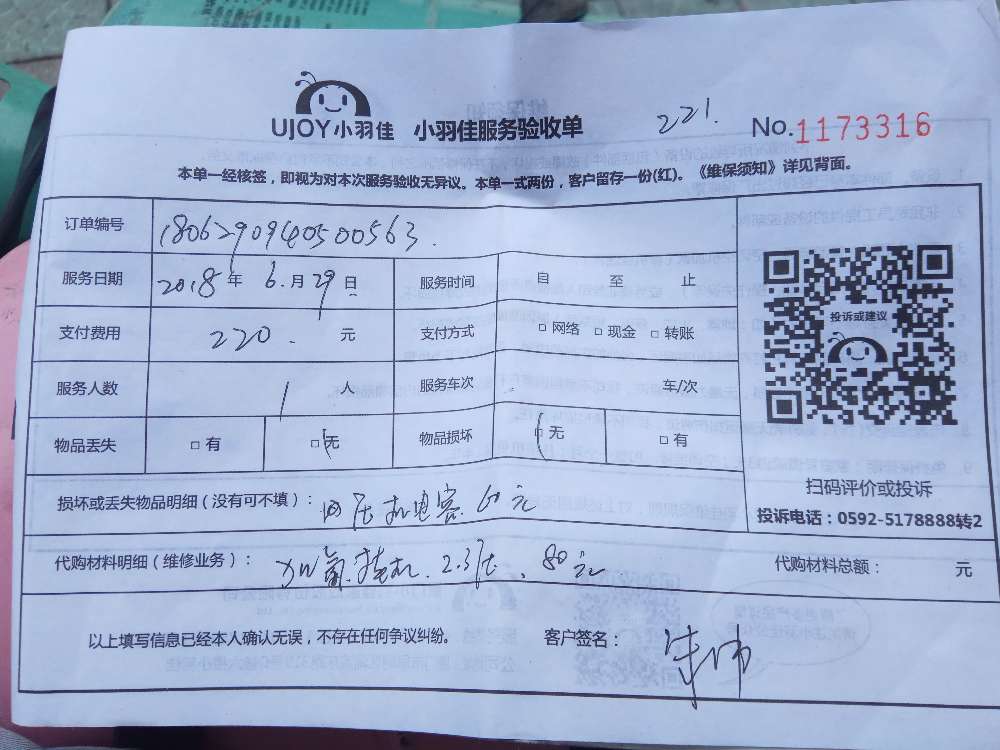 UJOY小羽佳 小羽佳服务验收单 221. No.1173316
本单一经核签，即视为对本次服务验收无异议。本单一式两份，客户留存一份(红)。《维保须知》详见背面。
订单编号 1806290940500563.
服务日期 2018年 6.月29日 服务时间 自 至 止
支付费用 220. 元 支付方式 □网络 □现金 □转账
服务人数 1 人 服务车次 车/次
物品丢失 □有 □无 物品损坏 □无 □有
投诉或建议
扫码评价或投诉
投诉电话：0592-5178888转2
损坏或丢失物品明细（没有可不填）： 压机电容 60元
代购材料明细（维修业务）： 加氟.挂机.2.3压、80元 代购材料总额： 元
以上填写信息已经本人确认无误，不存在任何争议纠纷。 客户签名：